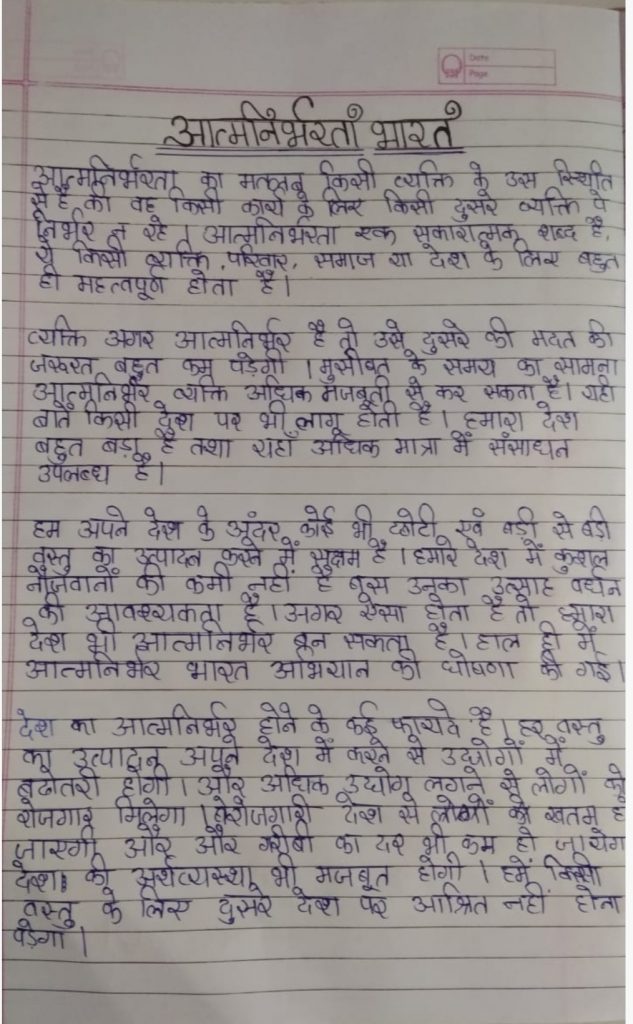 Date
Page
आत्मनिर्भरता भारत
आत्मनिर्भरता का मतलब किसी व्यक्ति के उस स्थिति
से है की वह किसी कार्य के लिए किसी दुसरे व्यक्ति पे
निर्भर न रहे । आत्मनिर्भरता एक सकारात्मक शब्द है,
ये किसी व्यक्ति, परिवार, समाज या देश के लिए बहुत
ही महत्वपूर्ण होता है।
व्यक्ति अगर आत्मनिर्भर है तो उसे दुसरे की मदत की
जरूरत बहुत कम पड़ेगी । मुसीबत के समय का सामना
आत्मनिर्भर व्यक्ति अधिक मजबूती से कर सकता है। यही
बातें किसी देश पर भी लागू होती है। हमारा देश
बहुत बड़ा है तथा यहाँ अधिक मात्रा में संसाधन
उपलब्ध है।
हम अपने देश के अंदर कोई भी छोटी एवं बड़ी से बड़ी
वस्तु का उत्पादन करने में सक्षम है। हमारे देश में कुशल
नौजवानों की कमी नहीं है बस उनका उत्साह वर्धन
की आवश्यकता है। अगर ऐसा होता है तो हमारा
देश भी आत्मनिर्भर बन सकता है। हाल ही में
आत्मनिर्भर भारत अभियान की घोषणा की गई।
देश का आत्मनिर्भर होने के कई फायदे है। हर वस्तु
का उत्पादन अपने देश में करने से उद्योगों में
बढोतरी होगी । और अधिक उद्योग लगने से लोगों को
रोजगार मिलेगा । बेरोजगारी देश से लोगों की खतम ह
जाएगी और और गरीबी का दर भी कम हो जायेग
देश की अर्थव्यस्था भी मजबूत होगी । हमें किसी
वस्तु के लिए दुसरे देश पर आश्रित नहीं होना
पड़ेगा ।